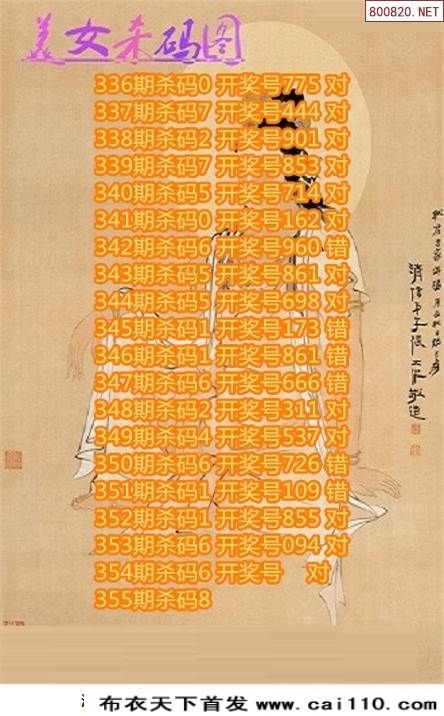 800820.NET
美女杀码图
336期杀码0 开奖号775 对
337期杀码7 开奖号444 对
338期杀码2 开奖号901 对
339期杀码7 开奖号853 对
340期杀码5 开奖号714 对
341期杀码0 开奖号162 对
342期杀码6 开奖号960 错
343期杀码5 开奖号861 对
344期杀码5 开奖号698 对
345期杀码1 开奖号173 错
346期杀码1 开奖号861 错
347期杀码6 开奖号666 错
348期杀码2 开奖号311 对
349期杀码4 开奖号537 对
350期杀码6 开奖号726 错
351期杀码1 开奖号109 错
352期杀码1 开奖号855 对
353期杀码6 开奖号094 对
354期杀码6 开奖号 对
355期杀码8
布衣天下首发 www.cai110.com